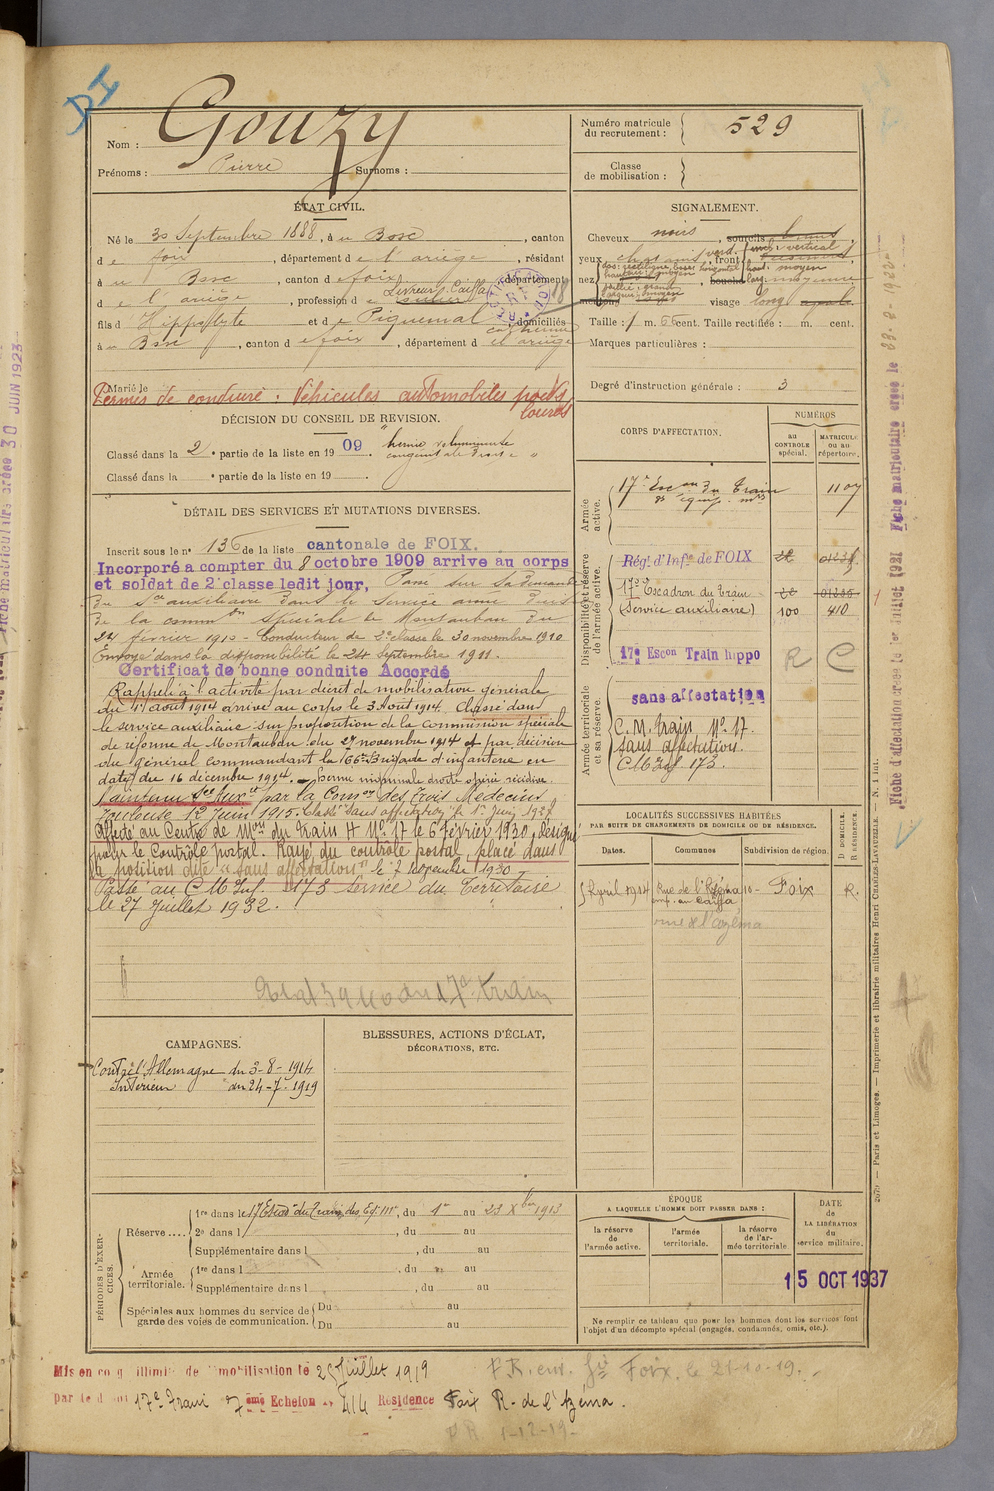 DI
Nom : Gouzy
Prénoms : Pierre Surnoms :
Numéro matricule du recrutement : 529
Classe de mobilisation :
ÉTAT CIVIL.
Né le 30 Septembre 1888, à u Bosc, canton
de foix, département de l'ariège, résidant
à u Bosc, canton de foix, département
de l'ariège, profession de Livreur Caïffa
fils d'Hippolyte et de Piquemal Catherine, domiciliés
à u Bosc, canton de foix, département de l'ariège
Marié le
Permis de conduire : Véhicules automobiles poids lourds
SIGNALEMENT.
Cheveux noirs, sourcils bruns
yeux, front
nez
visage long ovale
Taille : 1 m. cent. Taille rectifiée : m. cent.
Marques particulières :
Degré d'instruction générale : 3
DÉCISION DU CONSEIL DE REVISION.
Classé dans la 2e partie de la liste en 1909.
Classé dans la e partie de la liste en 19
DÉTAIL DES SERVICES ET MUTATIONS DIVERSES.
Inscrit sous le n° 136 de la liste cantonale de FOIX.
Incorporé a compter du 8 octobre 1909 arrive au corps
et soldat de 2e classe ledit jour, Passé sur sa demande
du Sce auxiliaire dans le Service armé
de la common spéciale de Montauban du
24 février 1910 - Conducteur de 2e classe le 30 novembre 1910
Envoyé dans la disponibilité le 24 Septembre 1911.
Certificat de bonne conduite Accordé
Rappelé à l'activité par décret de mobilisation générale
du 1er août 1914 arrivé au corps le 3 Août 1914. Classé dans
le service auxiliaire sur proposition de la Commission spéciale
de réforme de Montauban du 27 novembre 1914 et par décision
du général commandant la 66e Brigade d'infanterie en
date du 16 décembre 1914. - hernie inguinale droite opérée récidive.
Maintenu Sce Auxre par la Comon des Trois Médecins
Toulouse 12 Juin 1915. Classé "sans affectation" le 1er Juin 1927
Affecté au Centre de Mon du Train H No 17 le 6 février 1930, désigné
pour le Contrôle postal. Rayé du contrôle postal, placé dans
la position dite "sans affectation" le 7 novembre 1930
Passé au C M Inf. 173 Service du Territoire
le 27 Juillet 1932.
CORPS D'AFFECTATION.
NUMÉROS
AU CONTROLE spécial.
MATRICULE OU AU répertoire.
Armée active.
17e Escon du Train 1107
Disponibilité et réserve de l'armée active.
Régt d'Infie de FOIX
17e Escadron du Train
(Service auxiliaire) 100 410
17e Escon Train hippo R C
Armée territoriale et sa réserve.
sans affectation
C. M. Train No 17.
Sans affectation.
C M Inf 173.
LOCALITÉS SUCCESSIVES HABITÉES
PAR SUITE DE CHANGEMENTS DE DOMICILE OU DE RÉSIDENCE.
Dates. Communes Subdivision de région. D DOMICILE. R RÉSIDENCE.
5 Avril 1914 Rue de l'Azéma 10 - Foix R.
emp. au Caïffa
rue de l'azéma
CAMPAGNES.
Contre l'Allemagne du 3-8-1914
Intérieur au 24-7-1919
BLESSURES, ACTIONS D'ÉCLAT,
DÉCORATIONS, ETC.
PÉRIODES D'EXERCICES.
Réserve ....
1re dans le 17 Escad. du Train des Eq. mres, du 1er au 23 Xbre 1913
2e dans l , du au
Supplémentaire dans l , du au
Armée territoriale.
1re dans l , du au
Supplémentaire dans l , du au
Spéciales aux hommes du service de garde des voies de communication.
Du au
Du au
ÉPOQUE
A LAQUELLE L'HOMME DOIT PASSER DANS :
la réserve de l'armée active.
l'armée territoriale.
la réserve de l'armée territoriale
DATE de LA LIBÉRATION du service militaire.
15 OCT 1937
Ne remplir ce tableau que pour les hommes dont les services font l'objet d'un décompte spécial (engagés, condamnés, omis, etc.).
Mis en congé illimité de démobilisation le 25 Juillet 1919
par le dépôt 17e Train 7ème Echelon Résidence Foix R. de l'Azéma.
Foix. le 21-10-19.
1-12-19
Paris et Limoges. — Imprimerie et librairie militaires Henri CHARLES-LAVAUZELLE.
Fiche d'affectation créée le 1er Juillet 1921
Fiche matriculaire créée le
30 JUIN 1923